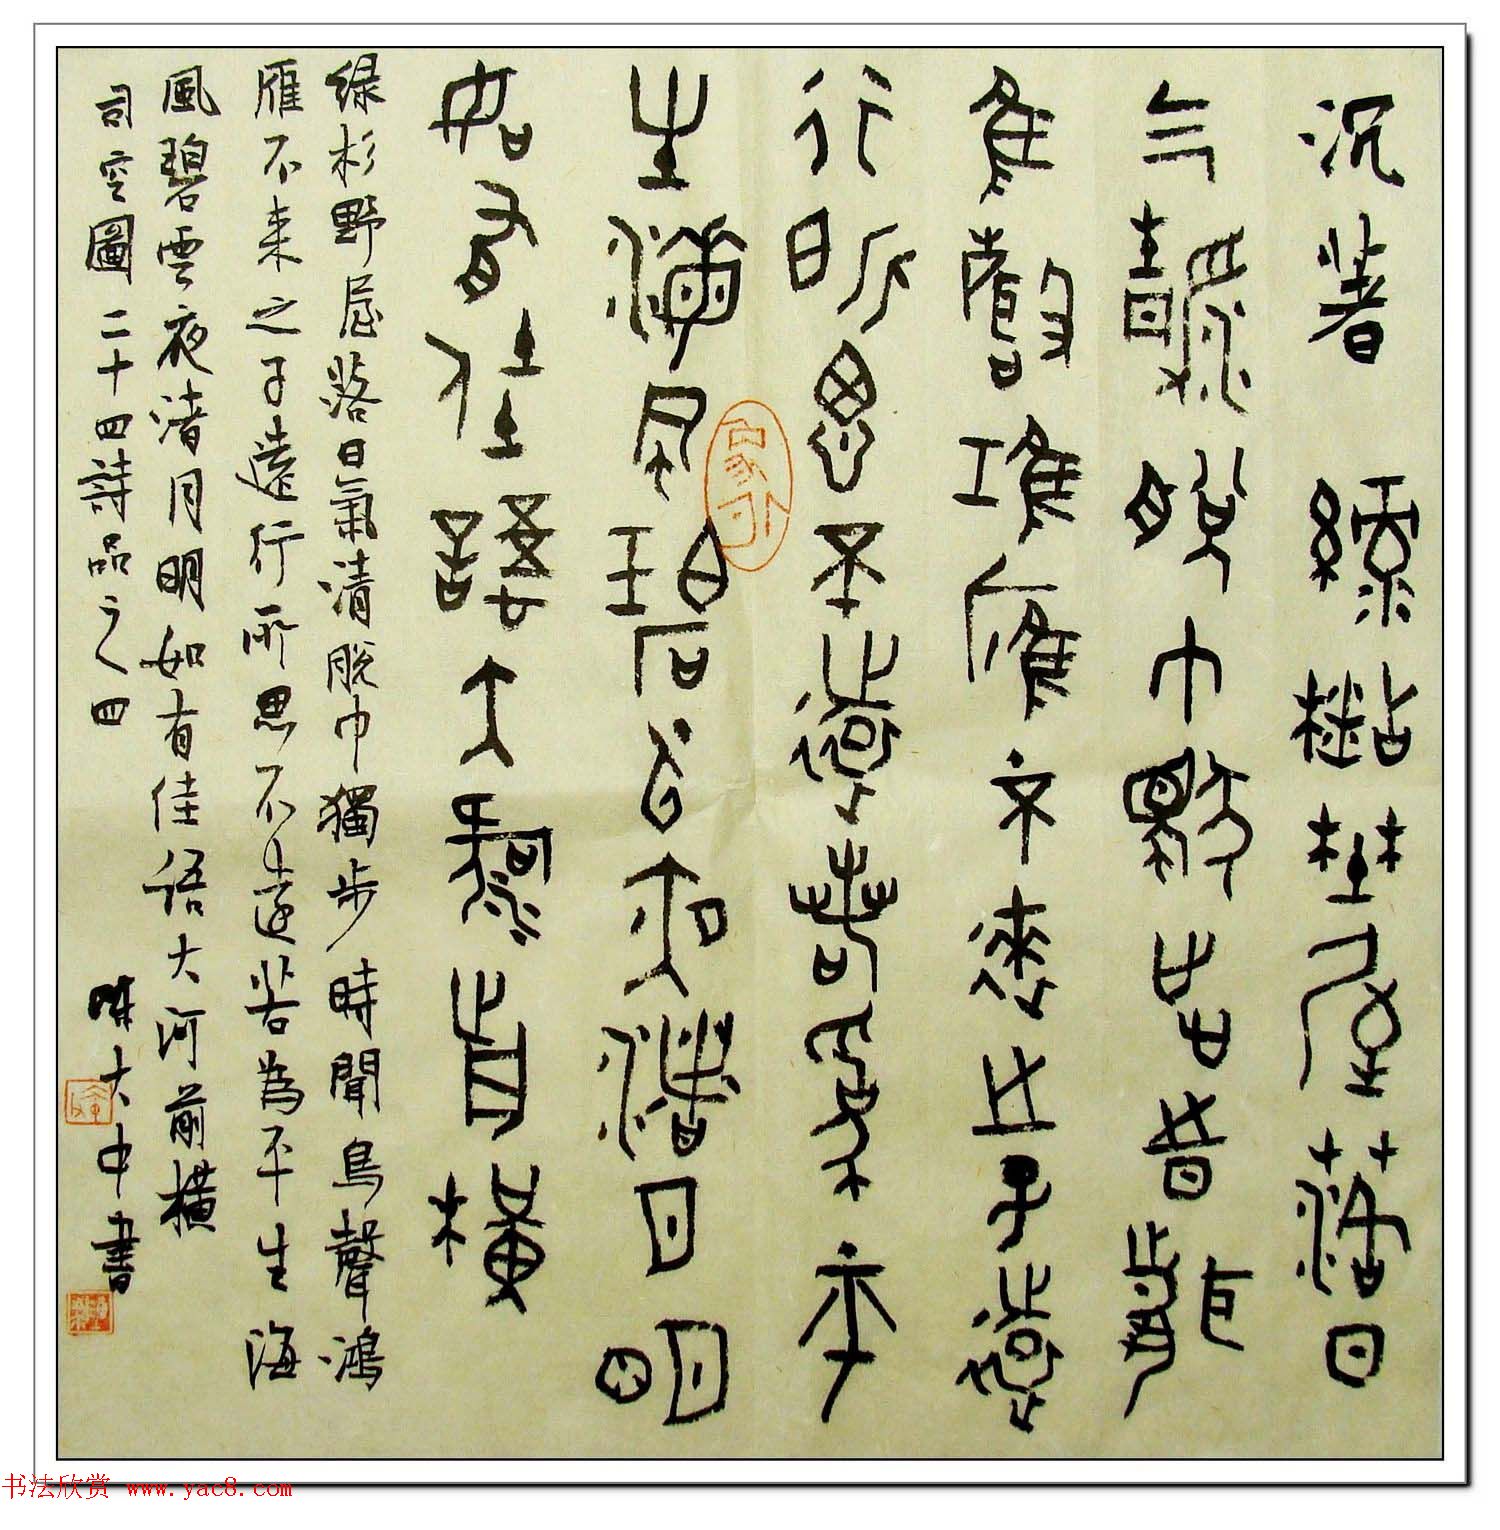 沉著 緑杉埜屋落日
气清脱巾獨步時聞
鳥聲鴻雁不來之子遠
行所思不遠若為平
生海風碧雲夜渚月明
如有佳語大河前橫
緑杉野屋落日氣清脱巾獨步時聞鳥聲鴻
雁不来之子遠行所思不遠若為平生海
風碧雲夜渚月明如有佳語大河前橫
司空圖二十四詩品之四 陳大中書
书法欣赏 www.yac8.com